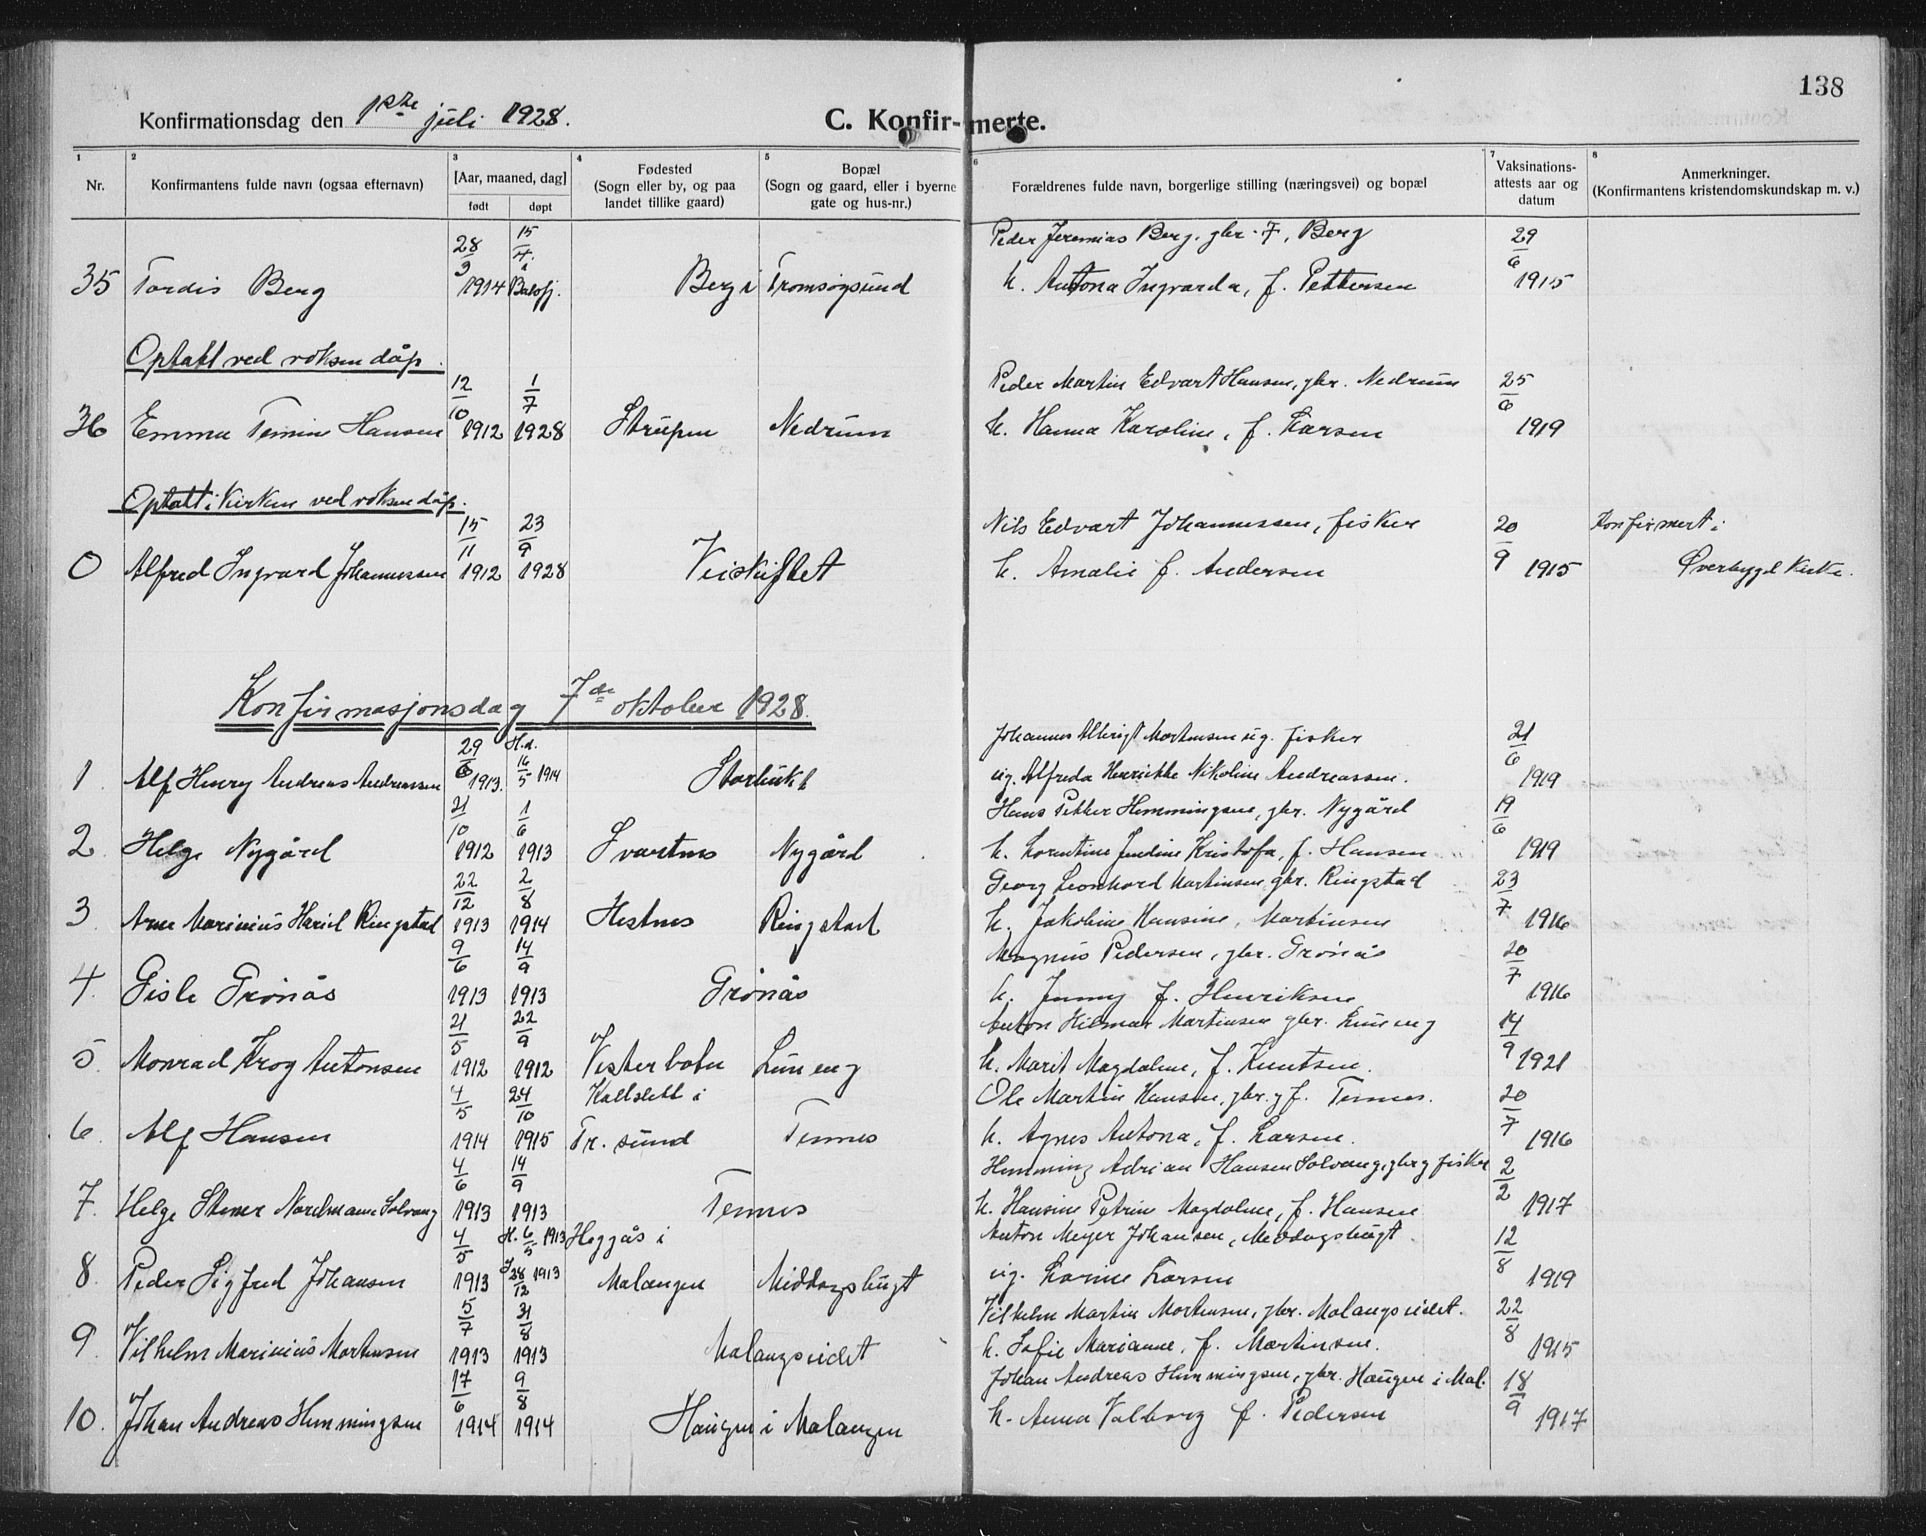 138
Konfirmationsdag den 1ste juli 1928.
C. Konfirmerte.
1 2 3 4 5 6 7 8
Nr.
Konfirmantens fulde navn (ogsaa efternavn)
[Aar, maaned, dag]
født døpt
Fødested
(Sogn eller by, og paa
landet tillike gaard)
Bopæl
(Sogn og gaard, eller i byerne
gate og hus-nr.)
Forældrenes fulde navn, borgerlige stilling (næringsvei) og bopæl
Vaksinations-
attests aar og
datum
Anmerkninger.
(Konfirmantens kristendomskundskap m. v.)
28/3 15/4 Peder Jeremias Berg, gbr. F, Berg 29/6
35 Tordis Berg 1914 Balsfj. Berg i Tromsøysund h. Antona Ingvarda, f. Pettersen 1915
Optatt ved voksen dåp.
12/10 1/7 Peder Martin Edvart Hansen, gbr. Nedrum 25/6
36 Emma Hansen 1912 1928 Strupen Nedrum h. Hanna Karoline, f. Larsen 1919
Optatt i kirken ved voksen dåp.
15/11 23/9 Nils Edvart Johannessen, fisker 20/9 Konfirmert i
0 Alfred Ingvard Johannessen 1912 1928 h. Amalie f. Andersen 1915 Øverbygd kirke.
Konfirmasjonsdag 7de oktober 1928.
29/6 H.d. 16/5 1914 Johannes Mortensen ug. fisker 21/6
1. Alf Henry Andreas Andreassen 1913. Storbukt ug. Alfreda Henrikke Nikoline Andreassen. 1919
21/10 1/6 Hans Petter Hemmingsen, gbr. Nygård 19/6
2. Helge Nygård 1912 1913 Svartnes Nygård h. Lorentine Jendine Kristofa, f. Hansen 1919
22/12 2/8 Georg Leonhard Martinsen gbr. Ringstad 23/7
3. Arne Marinius Ringstad 1913 1914 Hestnes Ringstad h. Jakobine Hansine, Martinsen 1916
9/6 14/9 Magnus Pedersen, gbr. Grönås 20/7
4. Gisle Grönås 1913 1913 Grönås h. Jenny f. Henriksen 1916
21/5 22/9 Anton Hilmar Martinsen gbr. Luneng 14/9
5. Monrad Krog Antonsen 1912 1912 Vesterbotn Luneng h. Marit Magdalene, f. Knutsen. 1921
4/5 24/10 Kaldslett i Ole Martin Hansen, gbr. g f. Tennes. 20/7
6. Alf Hansen 1914 1915 Tr. sund Tennes h. Agnes Antona, f. Larsen. 1916
4/6 14/9 Hemming Adrian Hansen Solvang, gbr g fisker 2/2
7. Helge Stener Nordmann Solvang 1913 1913 Tennes h. Hansine Petrine Magdalene, f. Hansen 1917
4/5 H. 6/5 1913 Heggås i Anton Meyer Johansen, Meddagsbugt 12/8
8. Peder Sigfred Johansen 1913 28/12 1913 Malangen Middagsbugt ug. Larsen 1919
5/7 31/8 Vilhelm Martin Mortensen, gbr. Malangseidet. 22/8
9. Vilhelm Marinius Mortensen 1913 1913 Malangseidet h. Sofie Marianne, f. Martinsen. 1915
17/6 9/8 Johan Andreas Hemmingsen, gbr. Haugen i Mal. 18/9
10. Johan Andreas Hemmingsen 1914 1914 Haugen i Malangen h. Anna Valborg f. Pedersen 1917